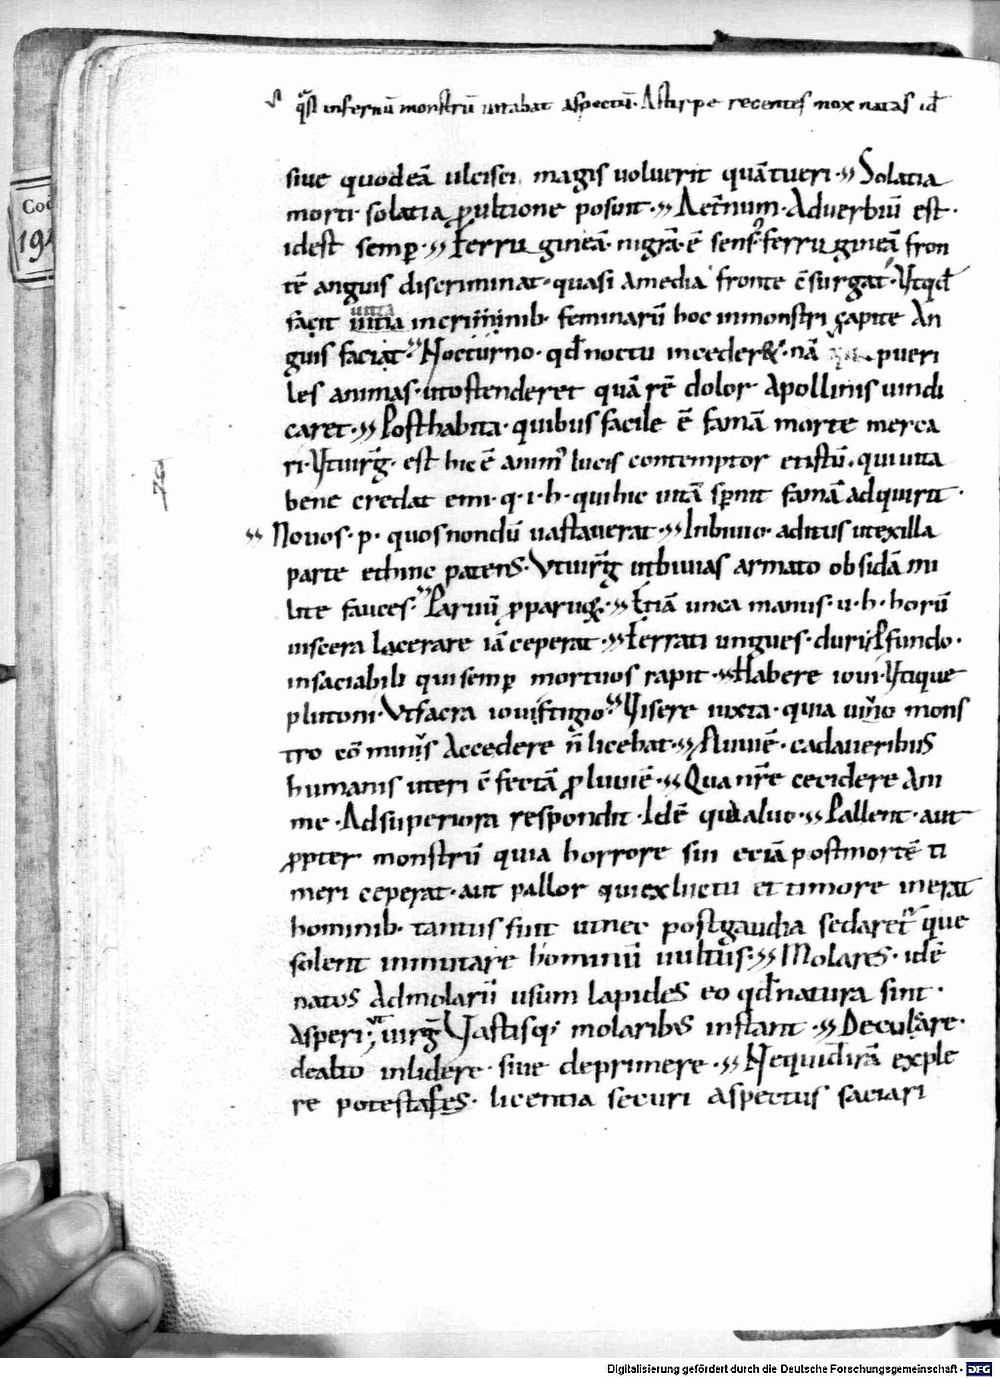 qͣsi infernū monstrū uitabat aspectū· A stirpe recentes nox natas id̄
siue quod eā ulcisci magis uoluerit quā tueri· Solatia
morti· solatia ꝓ ultione posunt· Aet̄num· Aduerbiū est·
idest semꝑ· Ferru gineā· nigrā· ē sensꝰ ferru gineā fron
tē anguis discriminat· quasi a media fronte ēsurgat· Vt qd̄
facit uitta in criminib· feminarū hoc in monstri capite An
guis faciat· Nocturno· qd̄ noctu inceder&· nā pueri
les animas· ut ostenderet quā rē dolor Apollinis uindi
caret· Posthabita· quibus facile ē famā morte merca
ri· Vt uirḡ· est hic ē animꝰ lucis contemptor et istū· qui uita
bene credat emi· q· i· h· qui hic uitā sp̄nit famā adquirit·
Nouos· p· quos nondū uastauerat· In biuio· aditus ut ex illa
parte et hinc patens· Vt uirḡ ut biuias armato obsidā mi
lite fauces· Paruū ꝓ paruꝗ· Etiā unca manus· u· h· horū
uiscera lacerare iā ceperat· Ferrati ungues· duri· Pfundo·
insaciabili qui semꝑ mortuos rapit· Habere ioui· Vtique
plutoni· Vt sacra ioui stigio· Visere iuxta· quia uiuo mons
tro cō minus Accedere n̄ licebat· Fluuiē· cadaueribus
humanis uteri ē fectā ꝓluuiē· Qua nr̄e cecidere Ani
me· Ad superiora respondit· Idē qui aluo· Pallent· aut
ꝓpter monstrū quia horrore sui eciā post mortē ti
meri ceperat· aut pallor qui ex luctu et timore inerat
hominib· tantus fuit ut nec post gaudia sedaret̄ que
solent inmutare hominū uultus· Molares· idē
natos Ad molariū usum lapides eo qd̄ natura sint·
Asperi; ut uirḡ Vastisq; molaribus instant· Deculcare·
de alto inlidere· siue deprimere· Nequid irā exple
re potestas es· licentia securi aspectus saciari
Cod
Digitalisierung gefördert durch die Deutsche Forschungsgemeinschaft - DFG